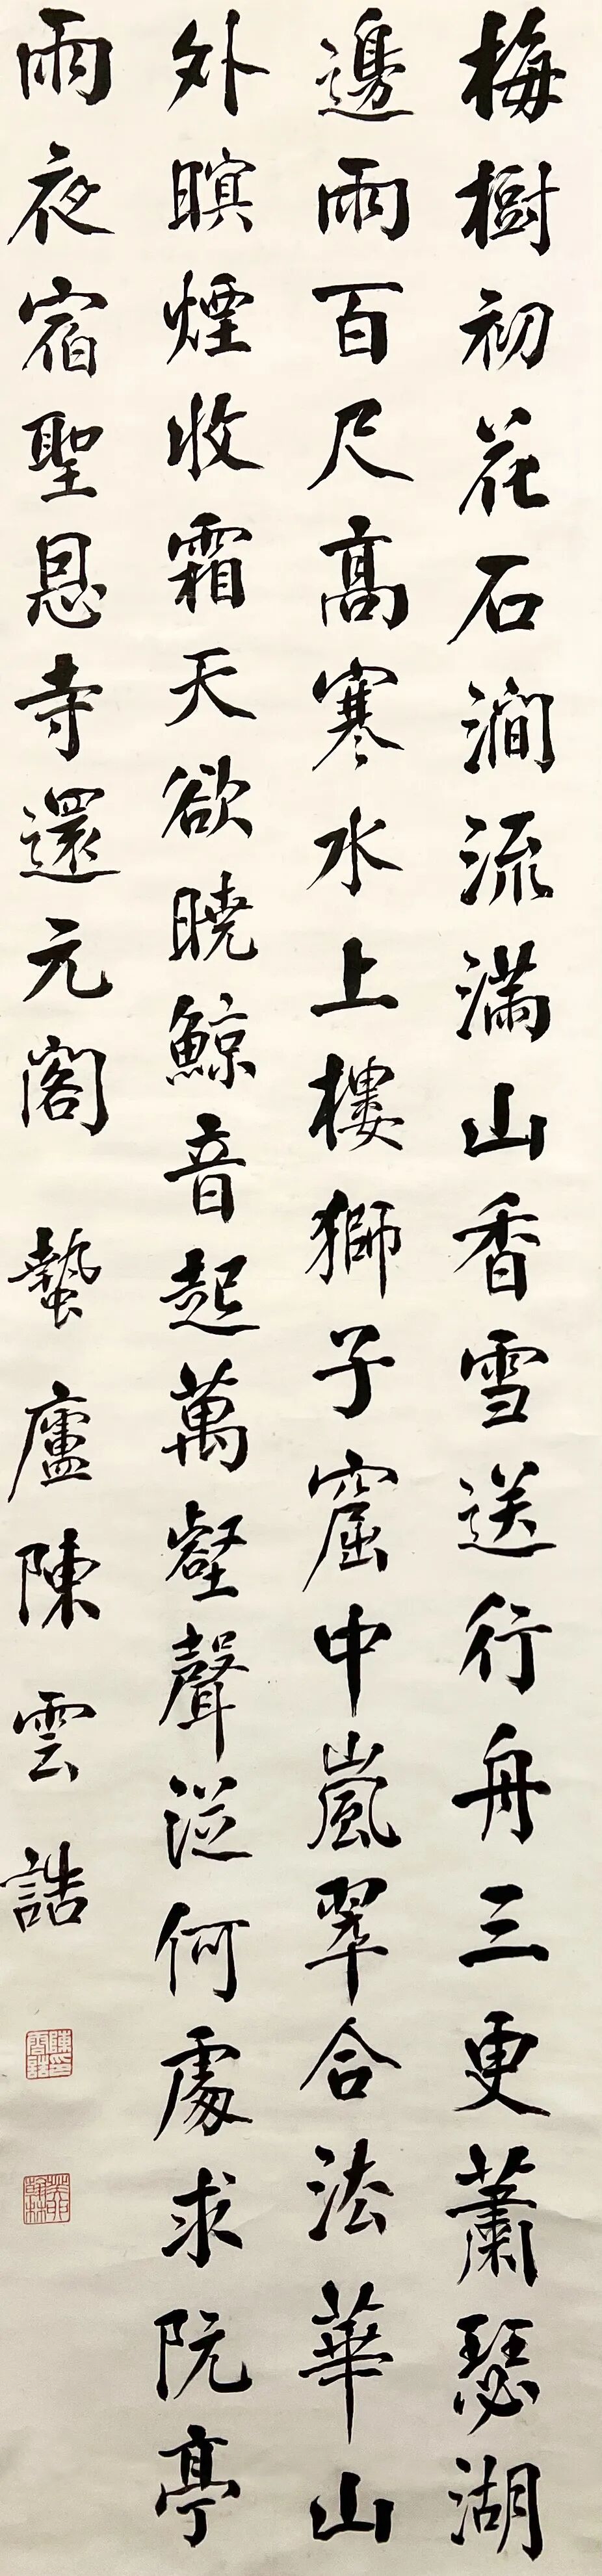 梅樹初花石澗流滿山香雪送行舟三更蕭瑟湖
邊雨百尺高寒水上樓獅子窟中嵐翠合法華山
外暝煙收霜天欲曉鯨音起萬壑聲從何處求阮亭
雨夜宿聖恩寺還元閣 蟄廬陳雲誥